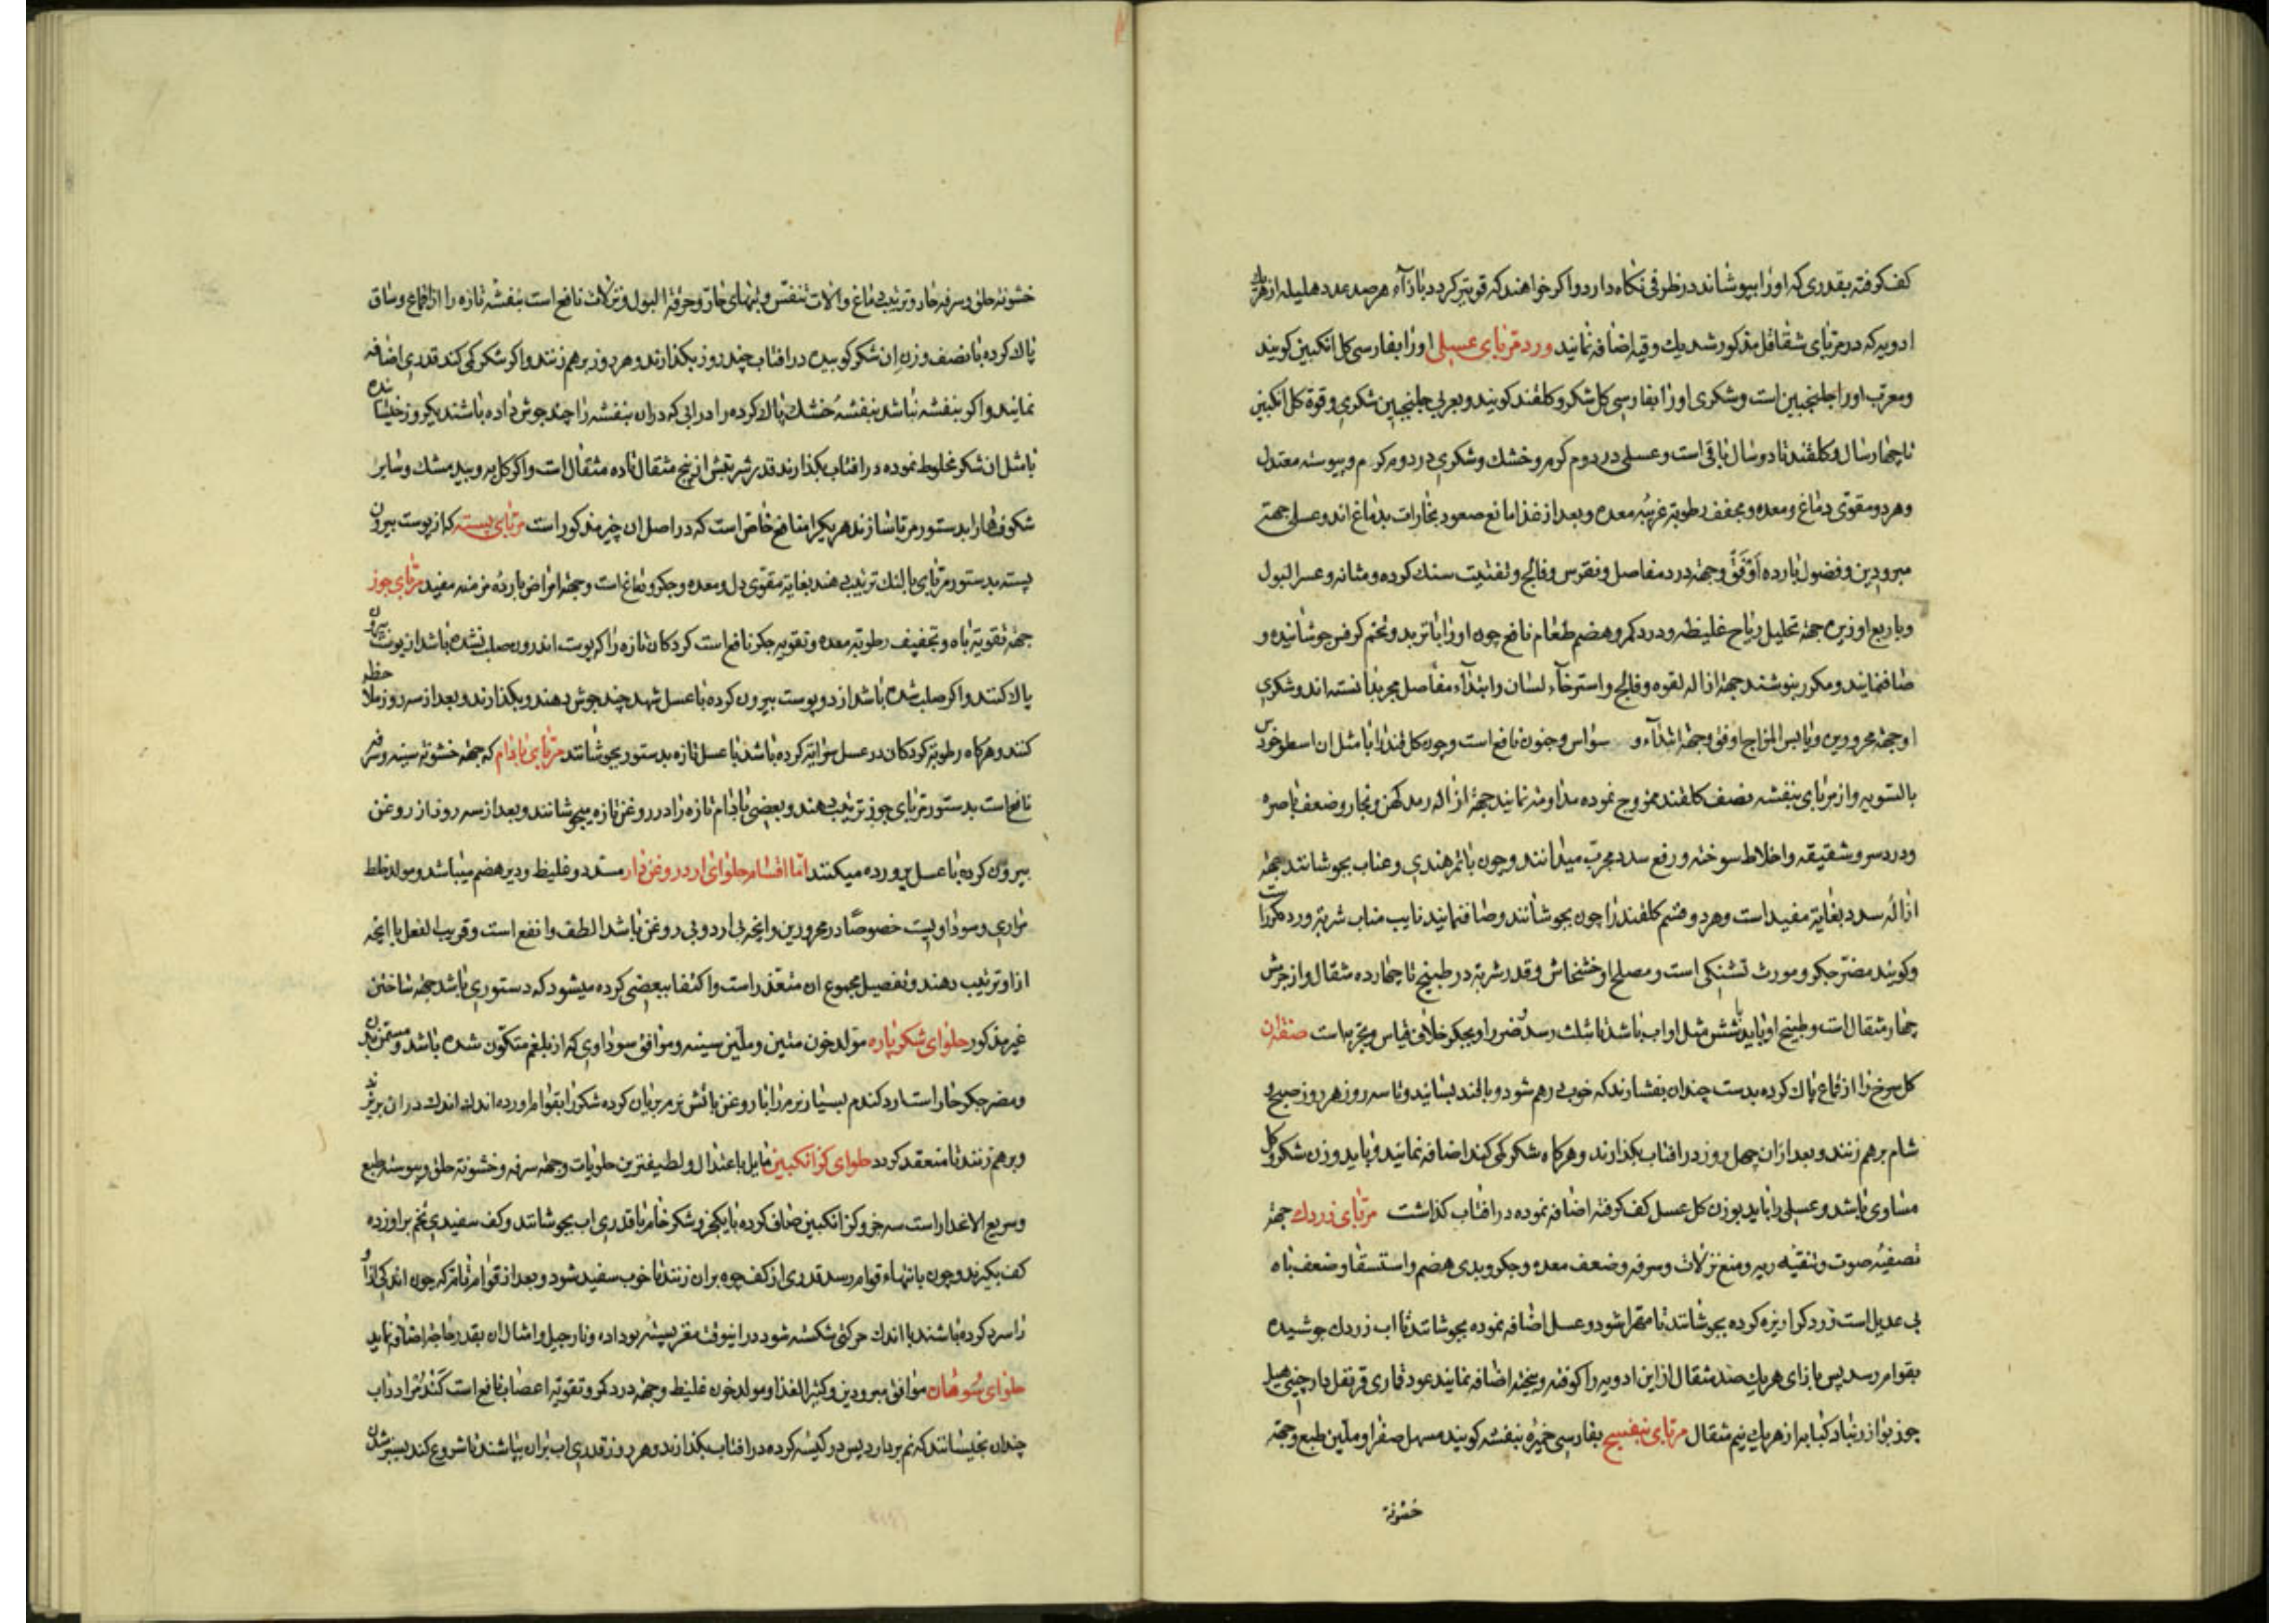 کف کرفته بقدری که اورا بپوشاند در ظرفی نکاه دارد واکر خواهند که قویتر کردد بازآء هر صد عدد هلیله از هر یک
ادویه که در مربای شقاقل مذکور شد یك وقیه اضافه نمایند ورد مربای عسلی اورا بفارسی کل انکبین کویند
ومعرب اورا جلنجبین است وشکری اورا بفارسی کل شکر و کلقند کویند وبعربی جلنجبین شکری وقوة کل انکبین
تا چهار سال وکلقند تا دو سال باقی است وعسلی در دوم کرم وخشك وشکری در دوم کرم و یبوسته معتدل
وهر دو مقوی دماغ ومعده ومجفف رطوبة غریبه معده وبعد از غذا مانع صعود بخارات بدماغ اند وعسلی جهة
مبرودین وفضول بارده اوفق وجهة درد مفاصل ونقرس وفالج وتفتیت سنك کرده ومثانه وعسر البول
وبا ربع او زیره جهة تحلیل ریاح غلیظه ودرد کمر وهضم طعام نافع چون اورا با تربد وتخم کرفس جوشانیده و
صاف نمایند ومکرر بنوشند جهة ازاله لقوه وفالج واسترخآء لسان وابتدآء مفاصل مجرب دانسته اند وشکری
او جهة محرورین ویابس المزاج اوفق وجهة ابتدآء و سواس وجنون نافع است وچون کل قند را با مثل ان اسطوخودس
بالسویه واز مربای بنفشه نصف کلقند ممزوج نموده مداومة نمایند جهة ازاله رمد کهن وبخار وضعف باصره
ودرد سر وشقیقه واخلاط سوخته ورفع سدد مجرب میدانند وچون با تمر هندی وعناب بجوشانند جهة
ازاله سدد بغایة مفید است وهر دو قسم کلقند را چون بجوشانند وصاف نمایند نایب مناب شربة ورد مکرر است
وکویند مضر جکر ومورث تشنکی است ومصلح او خشخاش وقدر شربة در طبیخ تا چهارده مثقال واز جرمش
چهار مثقال است وطبیخ او باید با شش مثل او اب باشد تا بثلث رسد وضرر او بجکر خلاف قیاس وتجربه است صنعة ان
کل سرخ را از قماع پاك کرده بدست چندان بفشارند که خوب درهم شود وبا قند بسایند وتا سه روز هر روز صبح و
شام برهم زنند وبعد ازان چهل روز در افتاب بکذارند وهرکاه شکر کمی کند اضافه نمایند وباید وزن شکر وکل
مساوی باشد وعسلی را باید بوزن کل عسل کف کرفته اضافه نموده در افتاب کذاشت مربای زردك جهة
تصفیه صوت وتنقیه ریه ومنع نزلات وسرفه وضعف معده وجکر وبدی هضم واستسقا وضعف باه
بی عدیل است زردك را ریزه کرده بجوشانند تا مهرا شود وعسل اضافه نموده بجوشانند تا اب زردك جوشیده
بقوام رسد پس بازای هر یك صد مثقال از این ادویه را کوفته وبیخته اضافه نمایند عود قماری قرنفل دارچینی هیل
جوز بوا زرنباد کبابه از هر یك نیم مثقال مربای بنفسج بفارسی خمیره بنفشه کویند مسهل صفرا وملین طبع وجهة
خشونة
خشونة حلق وسرفه حار وترتیب دماغ والات تنفس وتبهای حار وحرقة البول ونزلات نافع است بنفشه تازه را از اقماع وساق
پاك کرده با نصف وزن ان شکر کوبیده در افتاب چند روز بکذارند وهر روز برهم زنند واکر شکر کمی کند قدری اضافه
نمایند واکر بنفشه نباشد بنفشه خشك پاك کرده را در ابی که دران بنفشه را چند جوش داده باشند یکروز خیسانده
با مثل ان شکر مخلوط نموده در افتاب بکذارند قدر شربتش از پنج مثقال تا ده مثقال است واکر کل به وبید مشك وسایر
شکوفهارا بدستور مربا سازند هر یکرا منافع خاص است که در اصل ان چیز مذکور است مربای پسته که از پوست بیرون
پسته بدستور مربای بالنك ترتیب دهند بغایة مقوی دل ومعده وجکر ودماغ است وجهة امراض بارده مزمنه مفید مربای جوز
جهة تقویة باه وتجفیف رطوبة معده وتقویه جکر نافع است کردکان تازه را که پوست اندرون صلب نشده باشد از پوست بیرون
پاك کنند واکر صلب شده باشد از دو پوست بیرون کرده با عسل شهد چند جوش دهند وبکذارند وبعد از سه روز ملاحظه
کنند وهرکاه رطوبة کردکان در عسل سرایة کرده باشد با عسل تازه بدستور بجوشانند مربای بادام که جهة خشونة سینه وسرفه
نافع است بدستور مربای جوز ترتیب دهند وبعضی بادام تازه را در روغن تازه میجوشانند وبعد از سه روز از روغن
بیرون کرده با عسل پرورده میکنند اما اقسام حلوای ارد روغن دار مسدد وغلیظ ودیر هضم میباشد ومولد خلط
مراری وسوداویست خصوصًا در محرورین وانچه بی ارد وبی روغن باشد الطف وانفع است وقریب الفعل با انچه
ازاو ترتیب دهند وتفصیل مجموع ان متعذر است واکتفا ببعضی کرده میشود که دستوری باشد جهة ساختن
غیر مذکور حلوای شکر پاره مولد خون متین وملین سینه وموافق سوداوی که از بلغم متکون شده باشد ومسمن بدن
ومضر جکر حار است ارد کندم بسیار نرم را با روغن باتش نرم بریان کرده شکر را بقوام اورده اندك اندك دران بریزند
وبرهم زنند تا منعقد کردد حلوای کز انکبین مایل باعتدال ولطیفترین حلویات وجهة سرفه وخشونة حلق ویبوسة طبع
وسریع الاغدار است سه جزو کز انکبین صاف کرده با یکجزو شکر خام با قدری اب بجوشانند وکف سفیدی تخم براورده
کف بکیرند وچون بانتهاء قوام رسد قدری از کف چوبه بران زنند تا خوب سفید شود وبعد از قوام تامتر که چون اندکی ازاو
را سرد کرده باشند با اندك حرکتی شکسته شود دراینوقت مغز پسته بو داده ونارجیل وامثال ان بقدر حاجة اضافه نماید
حلوای سوهان موافق مبرودین وکثیر الغذا ومولد خون غلیظ وجهة درد کمر وتقویة اعصاب نافع است کندم را در اب
چندان بخیسانند که نم بردارد پس در کیسه کرده در افتاب بکذارند وهر روز قدری اب بران بپاشند تا شروع کند بسبز شدن